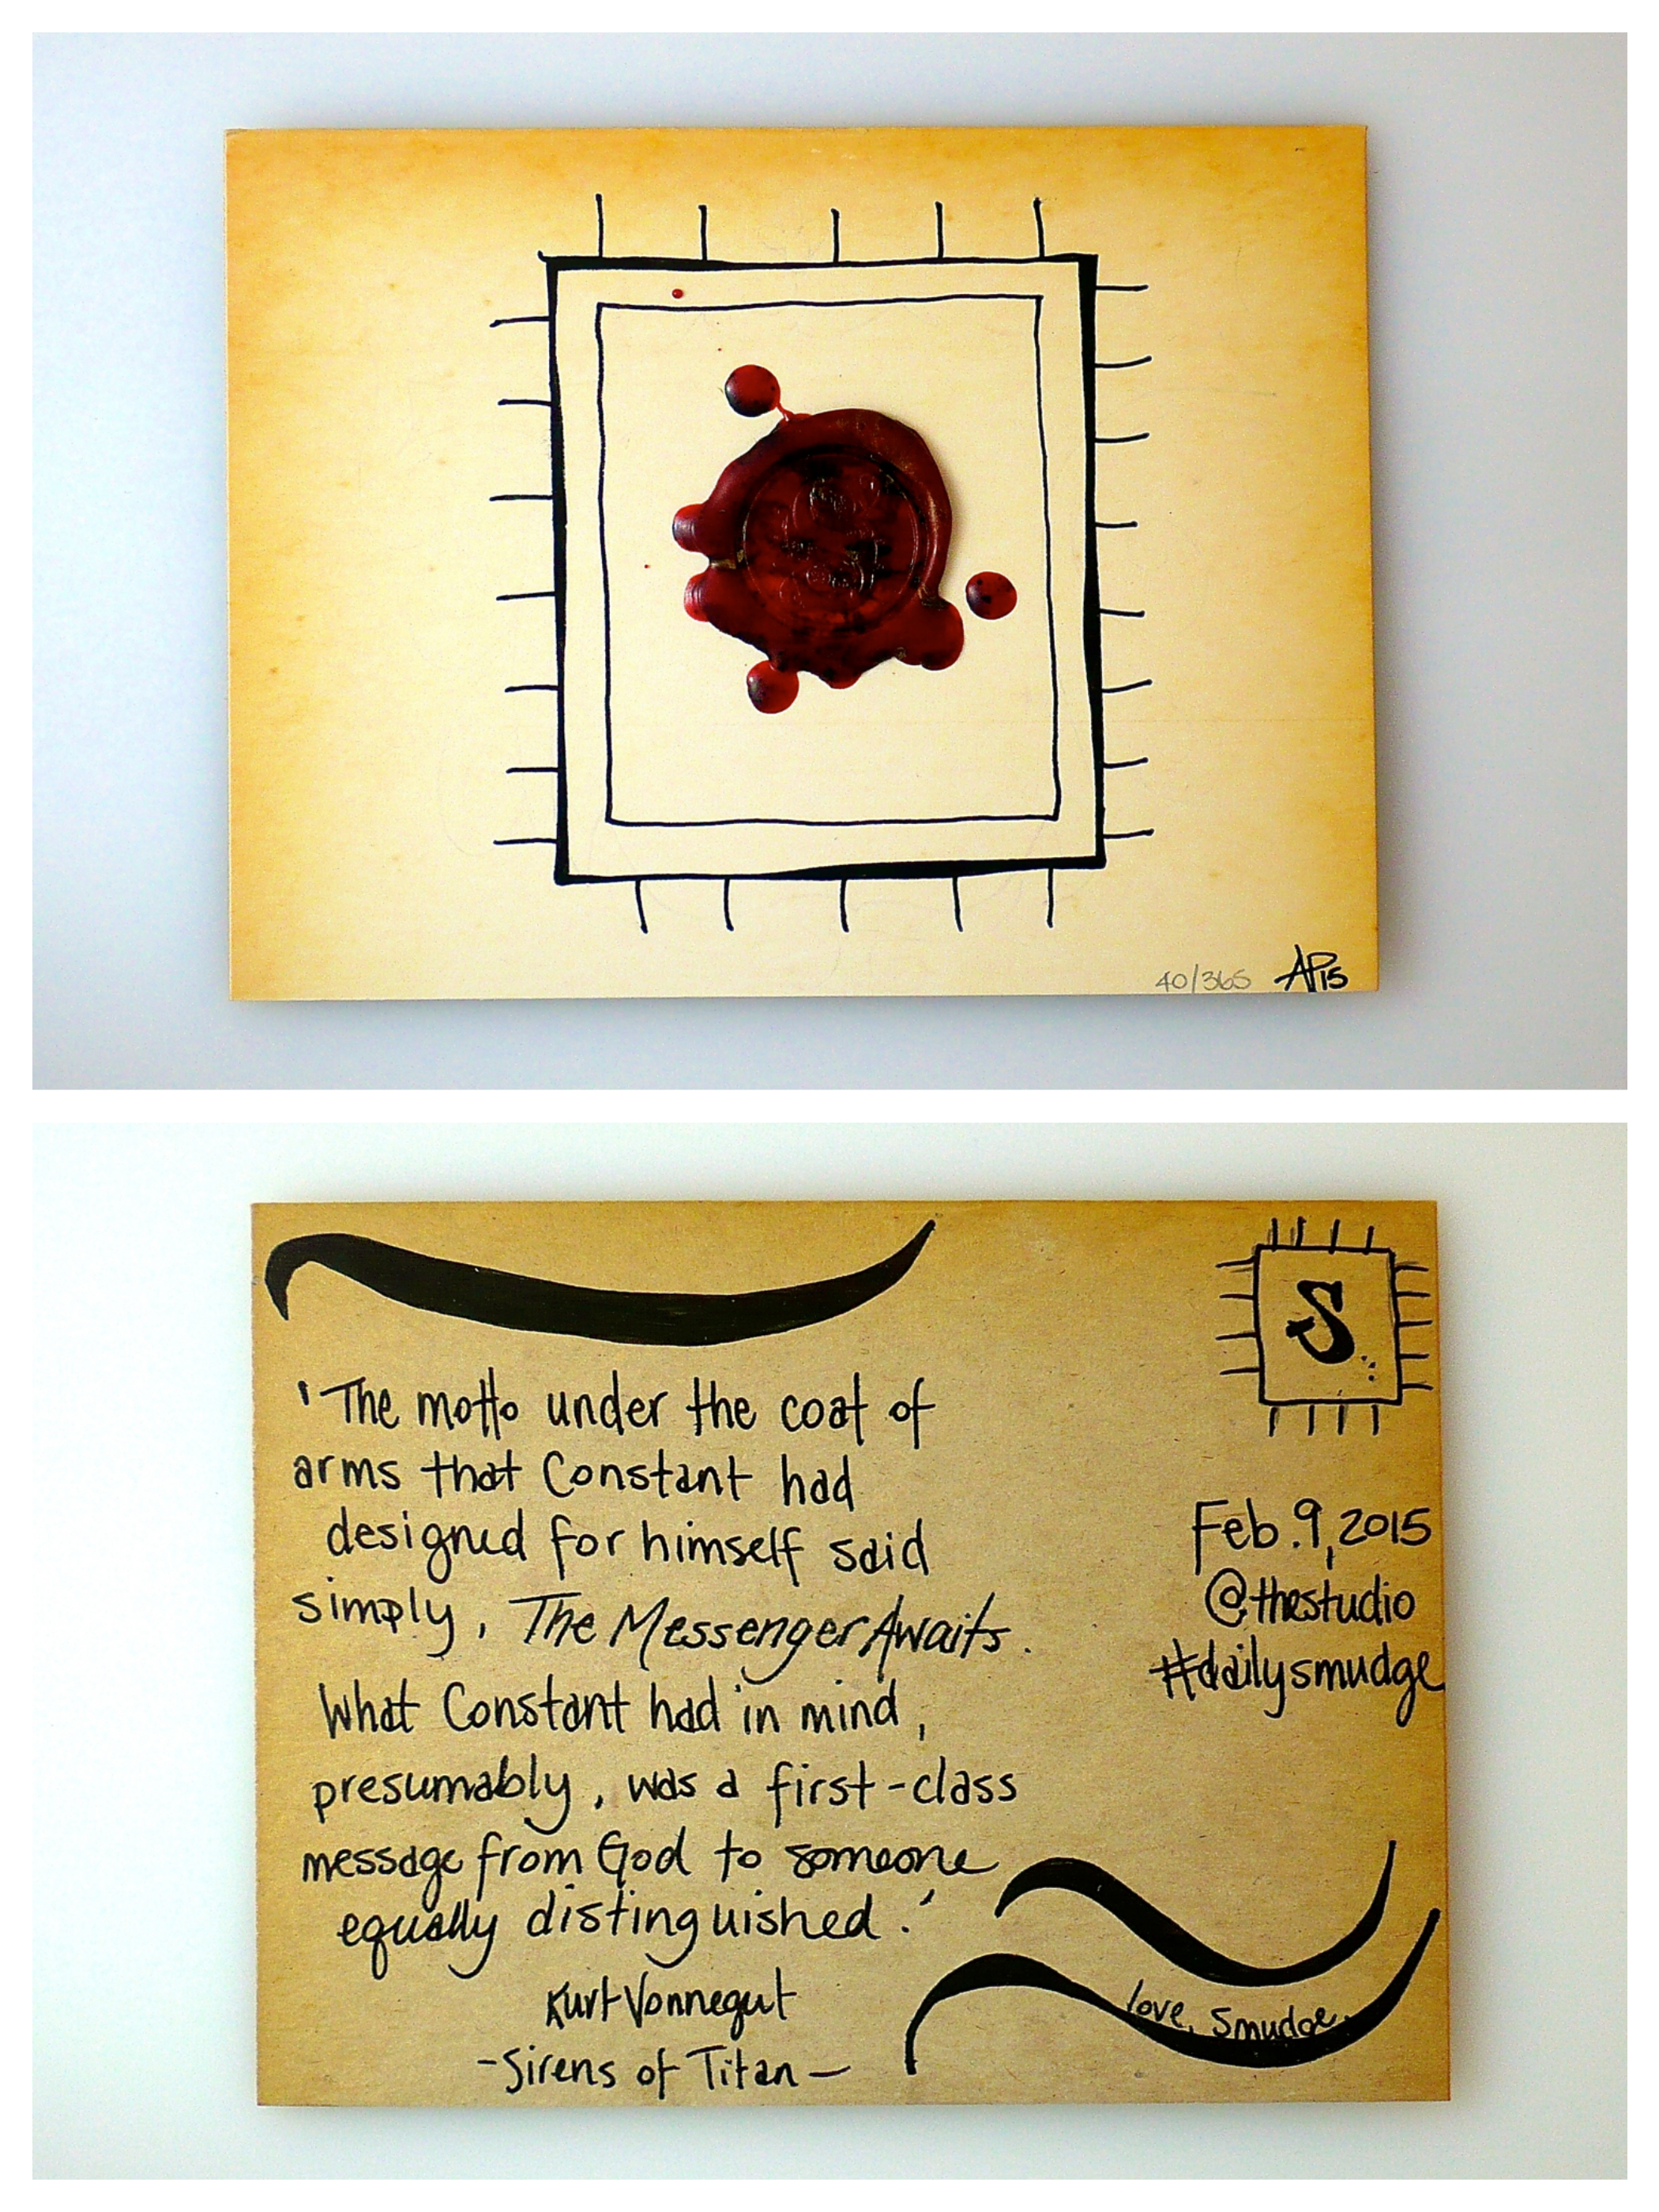 40/365 AP15
S
'The motto under the coat of
arms that Constant had
designed for himself said
simply, The Messenger Awaits.
What Constant had in mind,
presumably, was a first-class
message from God to someone
equally distinguished.'
Kurt Vonnegut
-Sirens of Titan-
Feb.9,2015
@thestudio
#dailysmudge
love, smudge.